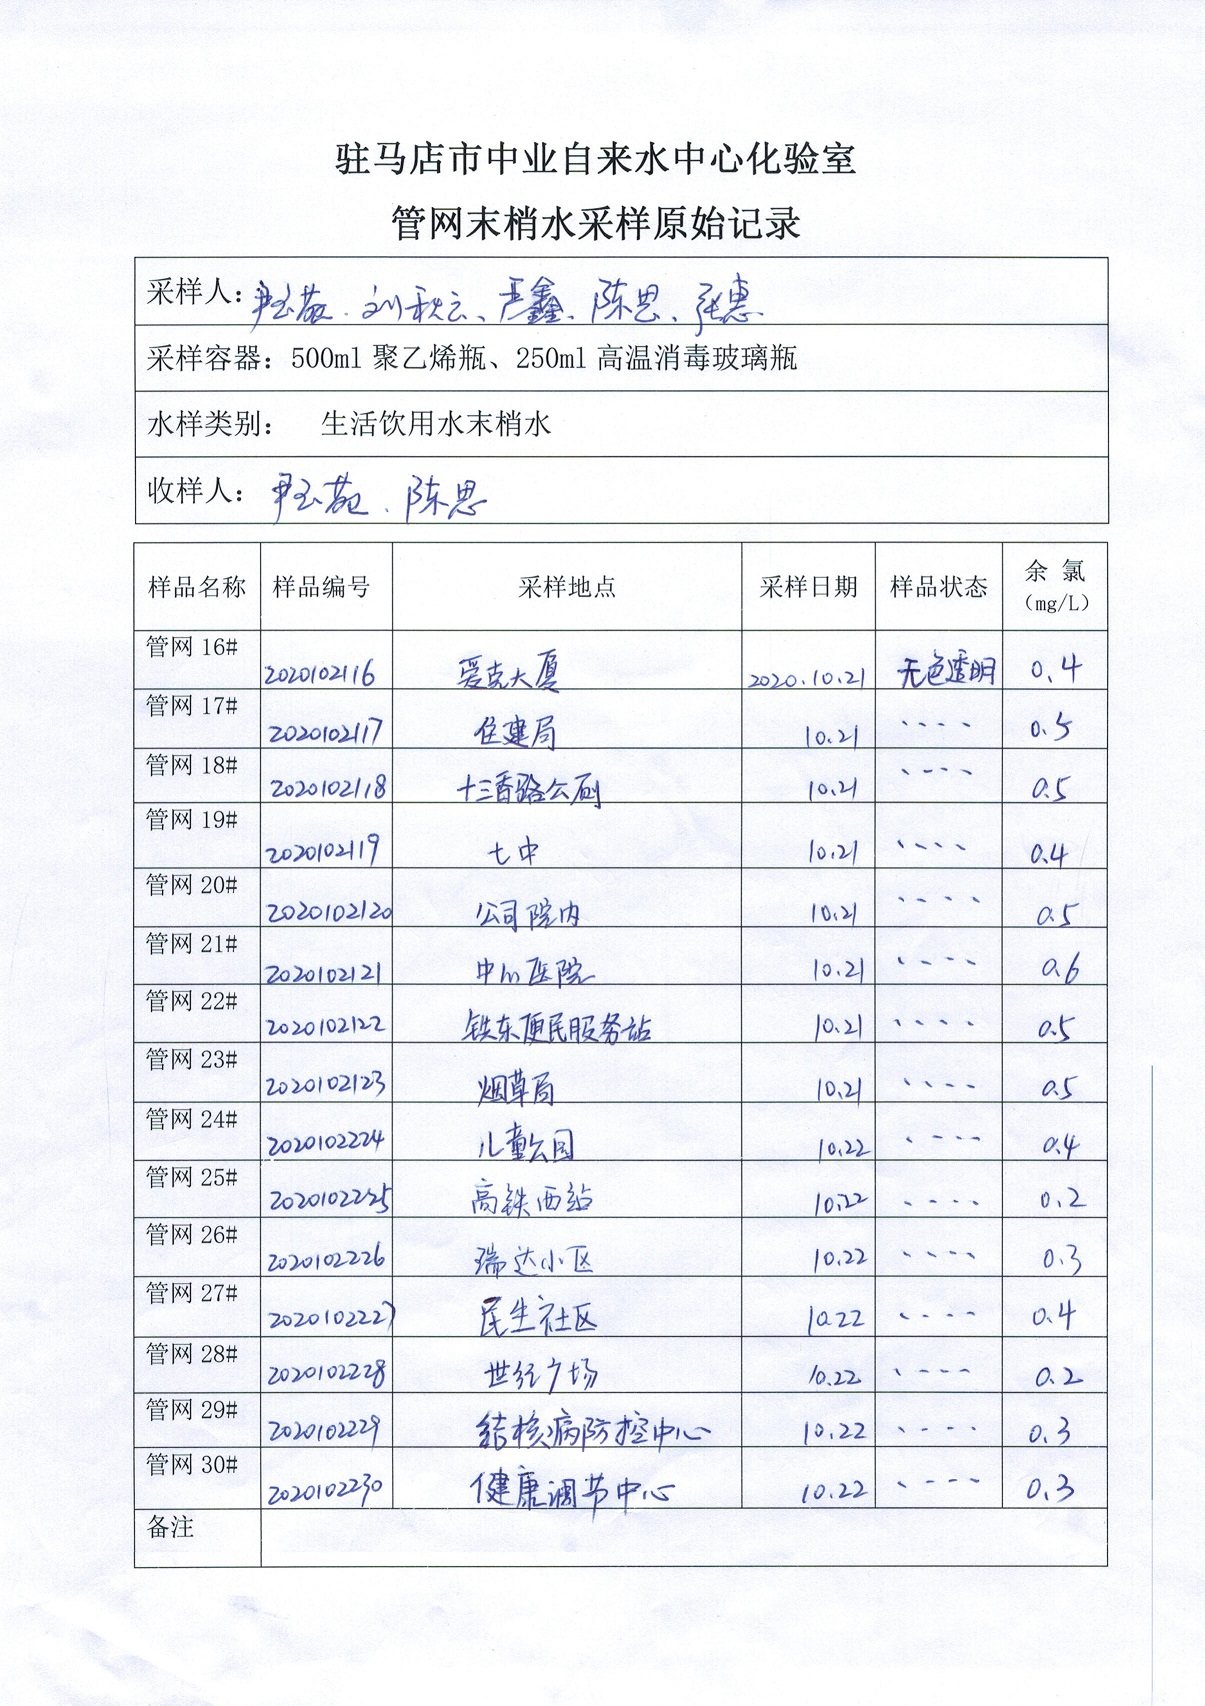 驻马店市中业自来水中心化验室
管网末梢水采样原始记录
采样人：尹玉敬、刘秋云、严鑫、陈思、张惠
采样容器：500ml 聚乙烯瓶、250ml 高温消毒玻璃瓶
水样类别： 生活饮用水末梢水
收样人：尹玉敬、陈思
样品名称 样品编号 采样地点 采样日期 样品状态 余 氯（mg/L）
管网 16# 2020102116 爱克大厦 2020.10.21 无色透明 0.4
管网 17# 2020102117 住建局 10.21 、、、、 0.5
管网 18# 2020102118 十三香路公厕 10.21 、、、、 0.5
管网 19# 2020102119 七中 10.21 、、、、 0.4
管网 20# 2020102120 公司院内 10.21 、、、、 0.5
管网 21# 2020102121 中心医院 10.21 、、、、 0.6
管网 22# 2020102122 铁东便民服务站 10.21 、、、、 0.5
管网 23# 2020102123 烟草局 10.21 、、、、 0.5
管网 24# 2020102224 儿童公园 10.22 、、、、 0.4
管网 25# 2020102225 高铁西站 10.22 、、、、 0.2
管网 26# 2020102226 瑞达小区 10.22 、、、、 0.3
管网 27# 2020102227 民生社区 10.22 、、、、 0.4
管网 28# 2020102228 世纪广场 10.22 、、、、 0.2
管网 29# 2020102229 结核病防控中心 10.22 、、、、 0.3
管网 30# 2020102230 健康调节中心 10.22 、、、、 0.3
备注